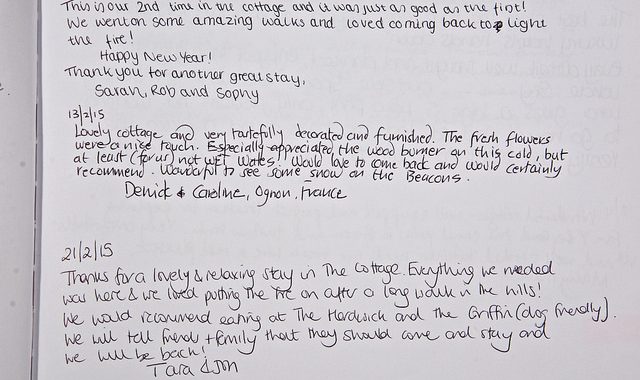 This is our 2nd time in the cottage and it was just as good as the first!
We went on some amazing walks and loved coming back to light
the fire!
Happy New Year!
Thank you for another great stay,
Sarah, Rob and Sophy
13/2/15
Lovely cottage and very tastefully decorated and furnished. The fresh flowers
were a nice touch. Especially appreciated the wood burner on this cold, but
at least (for us) not WET Wales! Would love to come back and would certainly
recommend. Wonderful to see some snow on the Beacons.
Derrick & Caroline, Ognon, France
21/2/15
Thanks for a lovely & relaxing stay in The Cottage. Everything we needed
was here & we loved putting the fire on after a long walk in the hills!
We would recommend eating at The Hardwick and the Griffin (dog friendly).
We will tell friends + family that they should come and stay and
we will be back!
Tara & Jon